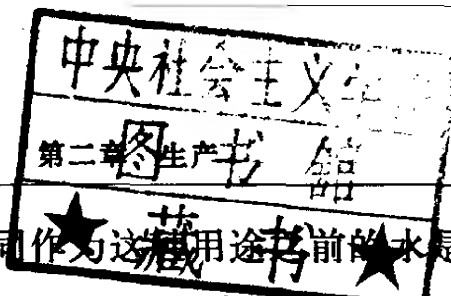 中央社会主义学
图书馆
第二章 生产
★ 藏书 ★
作为这用途之前的水是